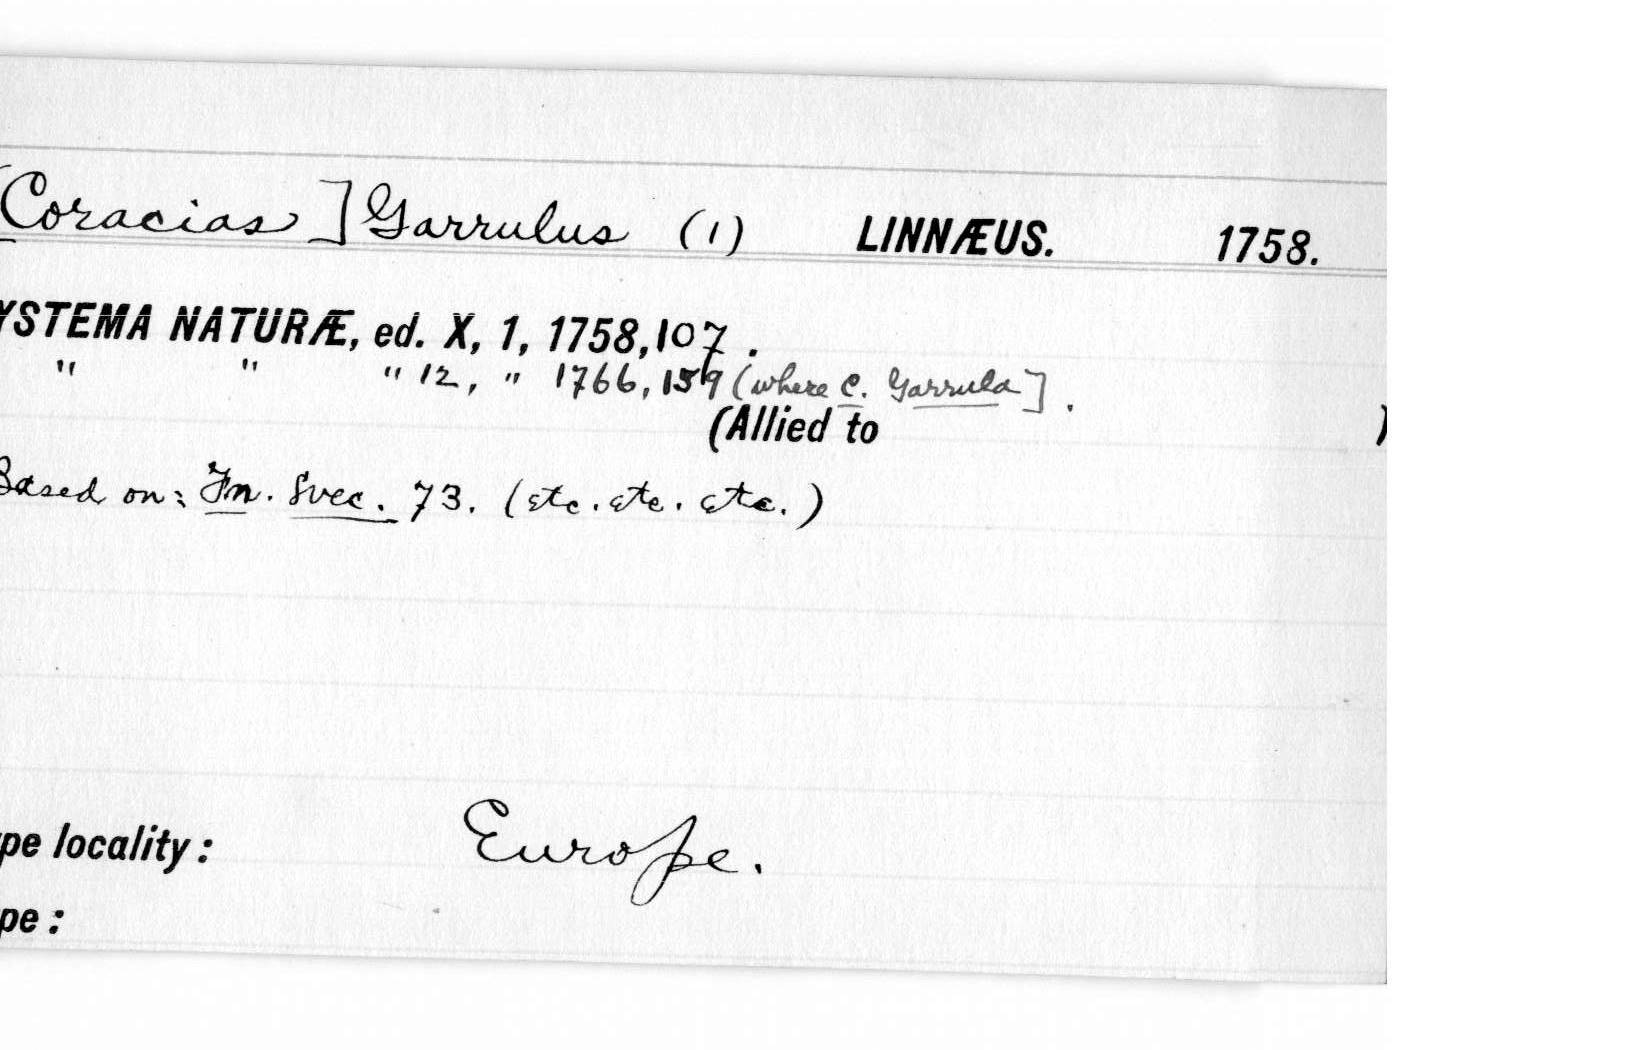 [Coracias] Garrulus (1) LINNÆUS. 1758.
YSTEMA NATURÆ, ed. X, 1, 1758, 107.
" " " 12, " 1766, 159 (where C. Garrula].
(Allied to )
Based on: Fn. Svec. 73. (etc. etc. etc.)
ype locality: Europe.
pe: